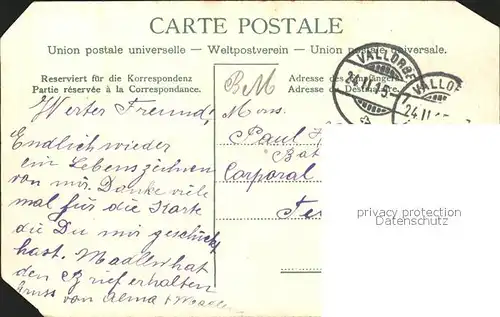 CARTE POSTALE
Union postale universelle — Weltpostverein — Union postale universale.
Reserviert für die Korrespondenz
Partie réservée à la Correspondance.
Adresse des Empfängers
Adresse du Destinataire.
VALLORBE
24.II
VALLOR
24.II
BM
Werter Freund!
Endlich wieder
ein Lebenszeichen
von mir. Danke viele
mal für die Karte
die Du mir geschickt
hast. hat
den Brief erhalten
Gruss von Alma
Mons.
Paul
Bat
Corporal
privacy protection
Datenschutz